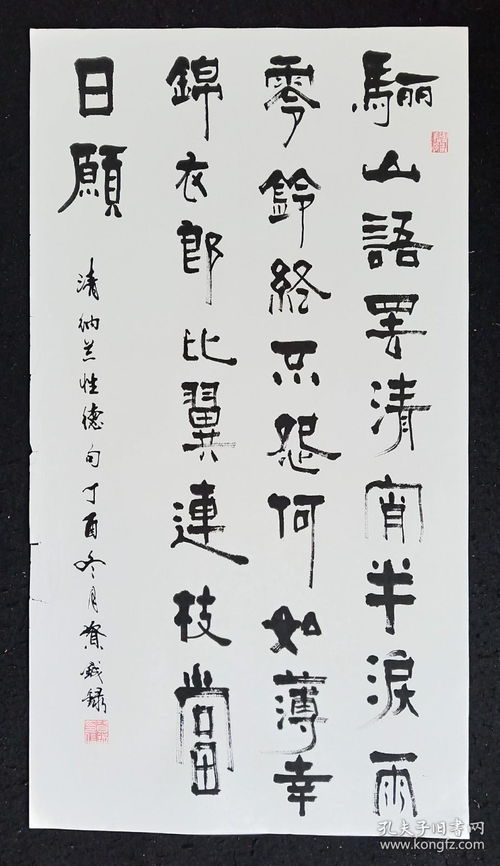 驪山語罷清宵半淚雨
零鈴終不怨何如薄幸
錦衣郎比翼連枝當
日願
清纳兰性德句丁酉冬月錄
孔夫子旧书网
kongfz.com